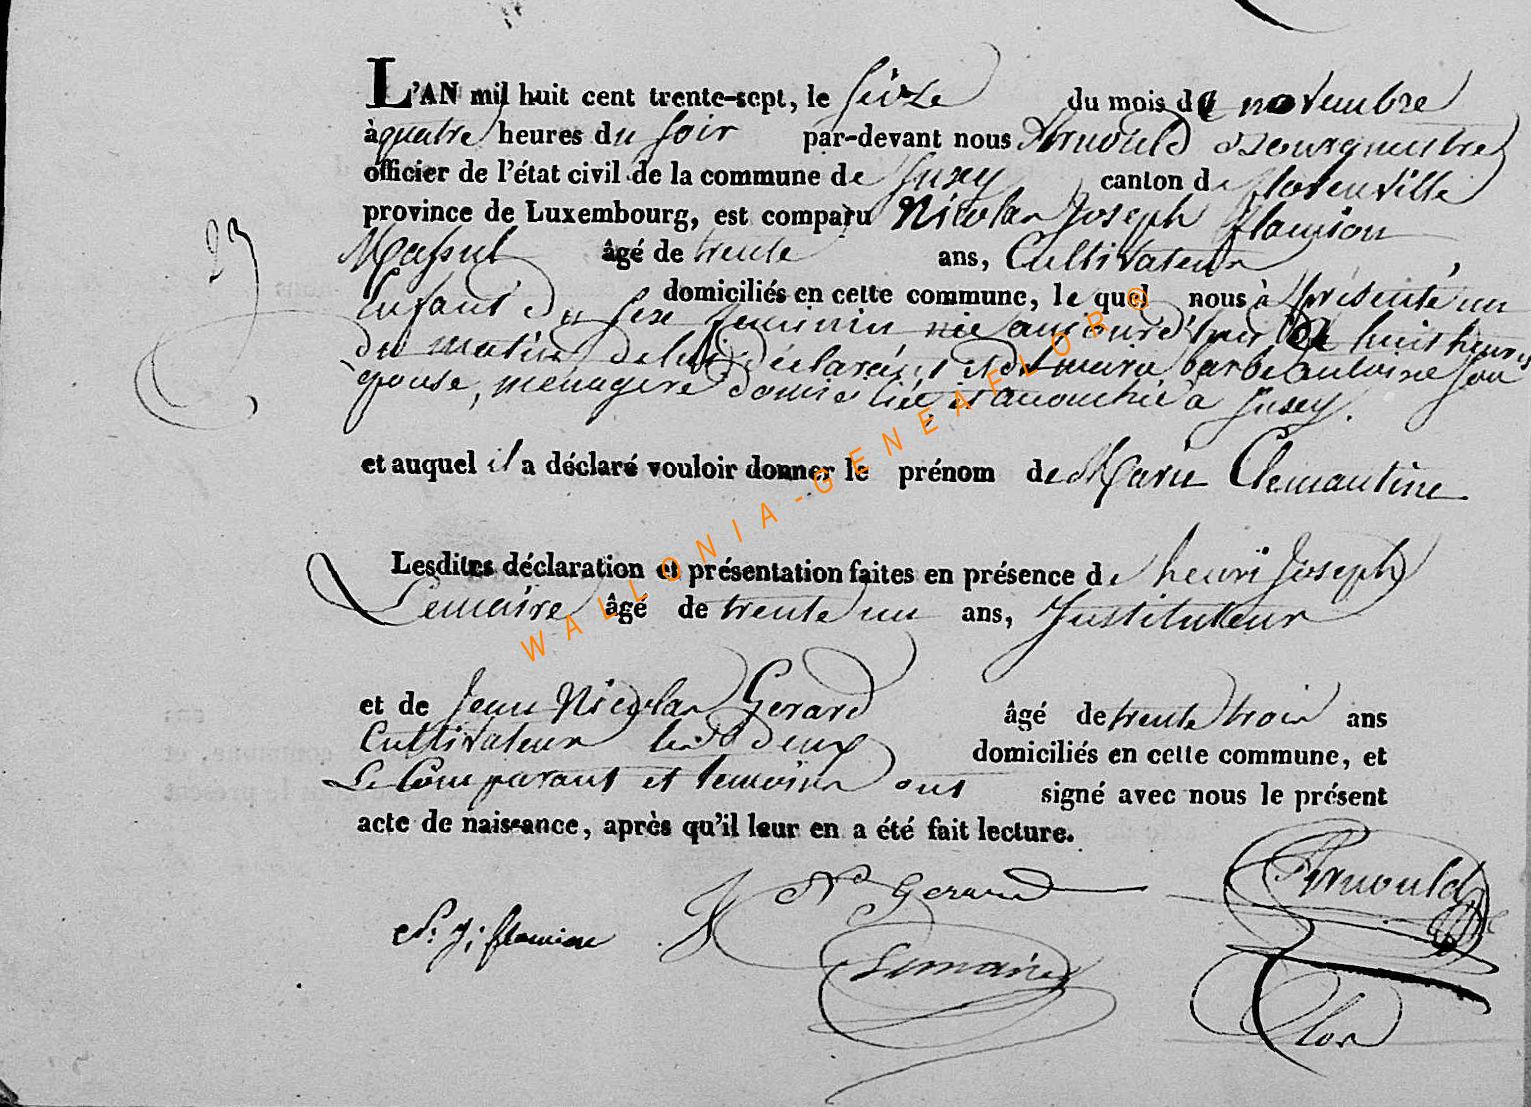 L'AN mil huit cent trente-sept, le seize du mois de novembre
à quatre heures du soir par-devant nous Arnould Bourgmestre
officier de l'état civil de la commune de Jusey canton de florenville
province de Luxembourg, est comparu Nicolas Joseph flamion
23
Massul âgé de trente ans, Cultivateur
domiciliés en cette commune, le quel nous à présenté un
Enfant du sexe feminin née aujourd'hui à huit heures
du matin de lui déclarant et de marie barbe antoine son
epouse, menagere domiciliée, et accouchée à Jusey.
et auquel il a déclaré vouloir donner le prénom de Marie Clemantine
Lesdites déclaration et présentation faites en présence de henri Joseph
Lemaire âgé de trente un ans, Instituteur
et de Jean Nicolas Gerard âgé de trente trois ans
Cultivateur les deux domiciliés en cette commune, et
Le Comparant et temoins ont signé avec nous le présent
acte de naissance, après qu'il leur en a été fait lecture.
N. J. flamion
Nas Gerard
Arnould
Lemaire
WALLONIA-GENEAFLOR©